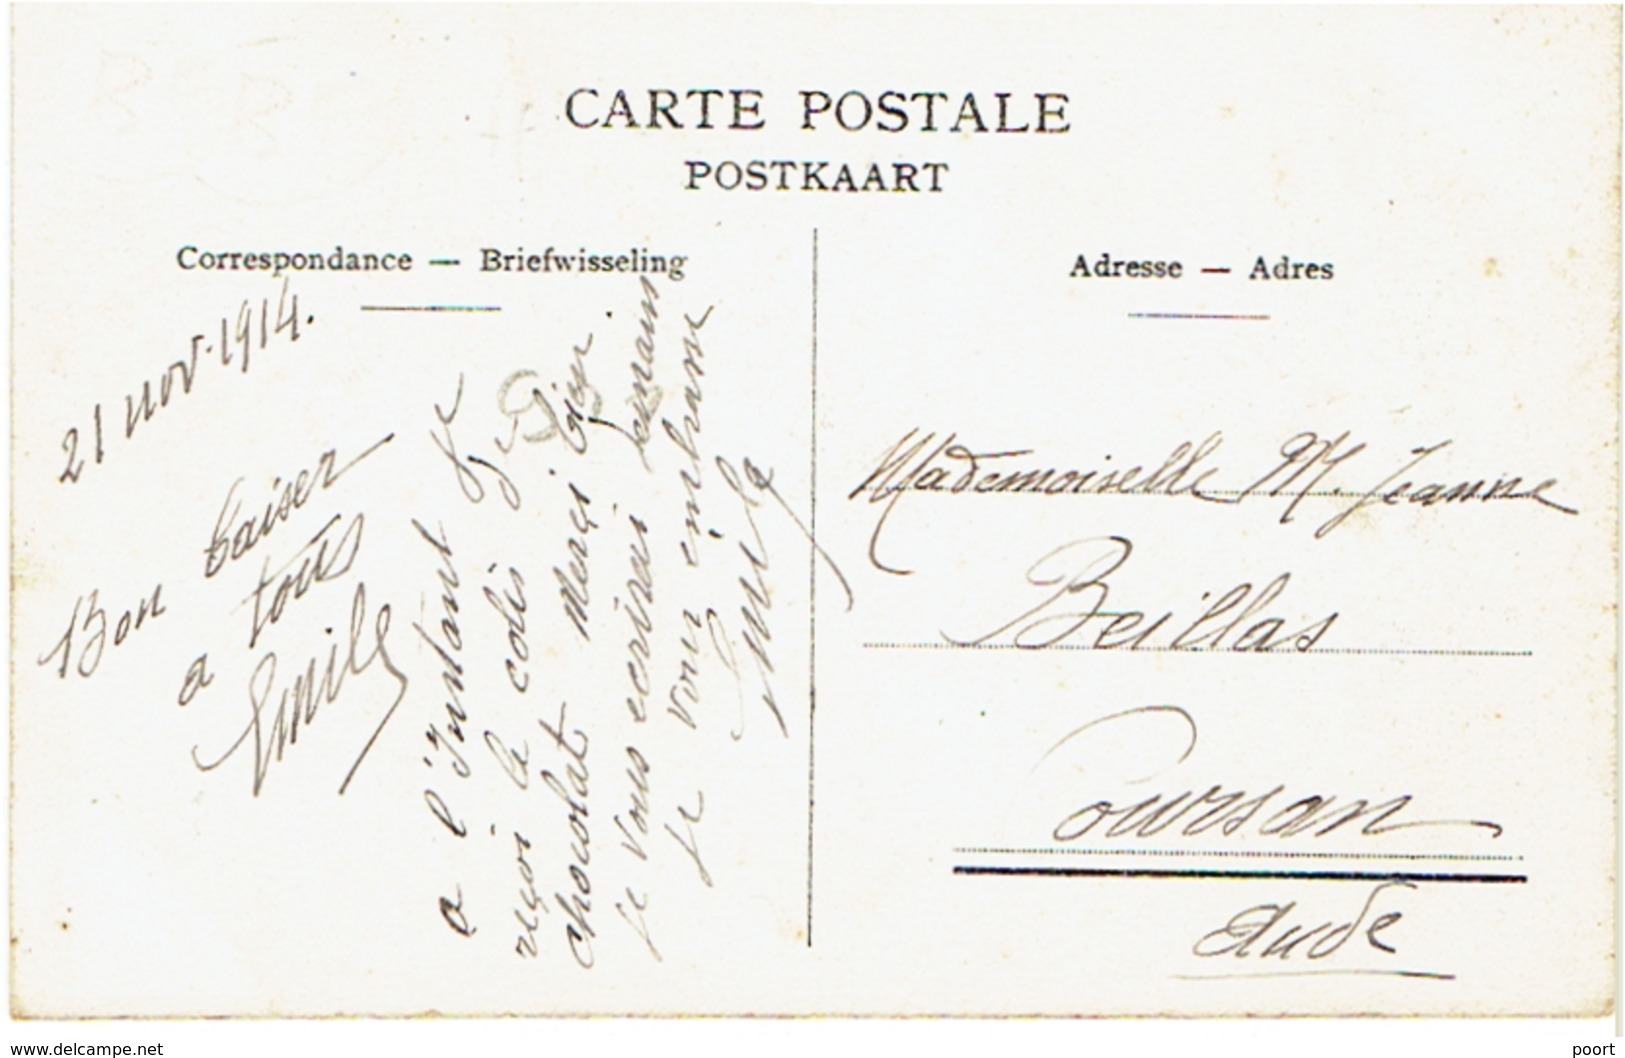 CARTE POSTALE
POSTKAART
Correspondance — Briefwisseling
Adresse — Adres
21 nov. 1914.
Bon baiser
a tous
Emile
a l'Instant Je
reçoi le colis de
chocolat Merci bien.
Je vous ecrirai demain
Je vous embrasse
Emile
Mademoiselle M. Jeanne
Beillas
Coursan
Aude
www.delcampe.net
poort